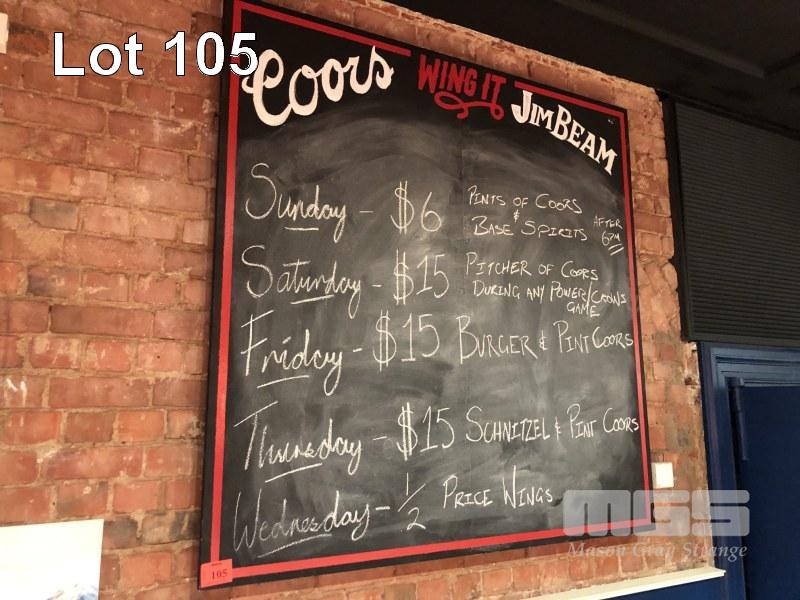 Lot 105
Coors WING IT JIM BEAM
Sunday - $6 PINTS OF COORS
& BASE SPIRITS AFTER 6PM
Saturday - $15 PITCHER OF COORS
DURING ANY POWER/CROWS
GAME
Friday - $15 BURGER & PINT COORS
Thursday - $15 SCHNITZEL & PINT COORS
Wednesday - 1/2 PRICE WINGS
MGS
Mason Gray Strange
105